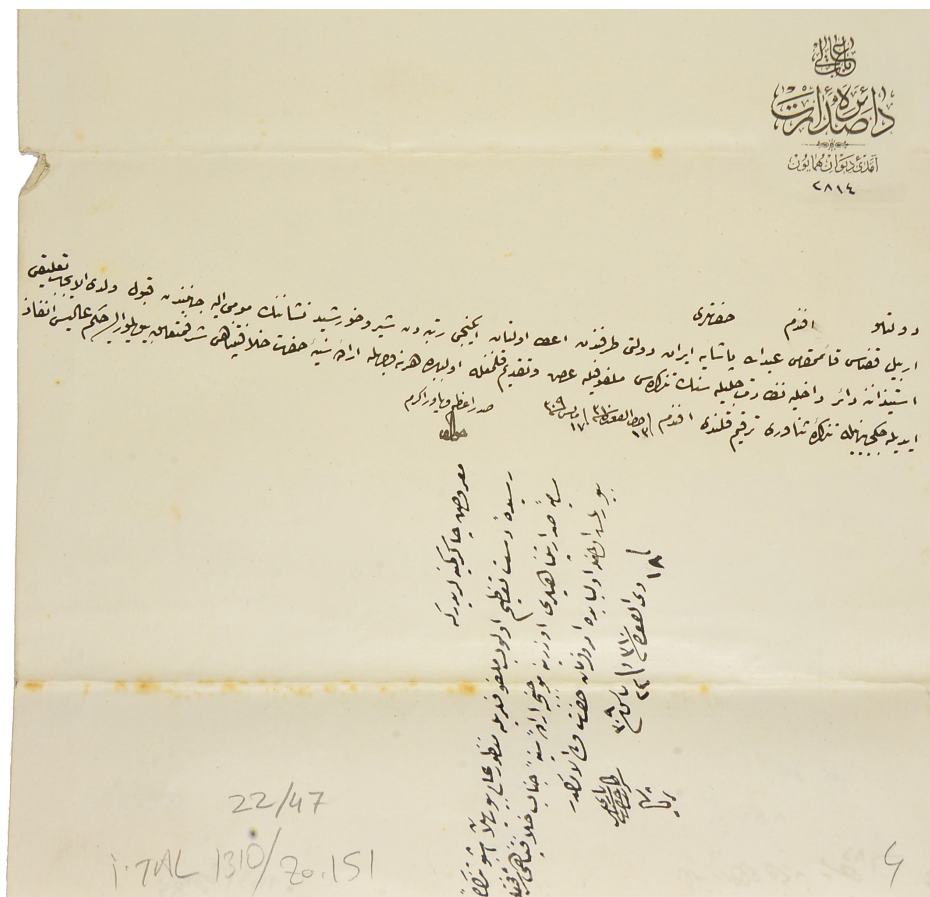 باب عالی
دائرهٔ صدارت
آمدئ دیوان همایون
٢٨١٤
دولتلو افندم حضرتلری
اربیل قضاسی قائممقامی عبدالله پاشایه ایران دولتی طرفندن اعطا اولنان ایکنجی رتبه دن شیر و خورشید نشاننك مومی الیه جهتندن قبول و لدی الایجاب تعلیقی
استیذاننه دائر داخلیه نظارت جلیله سنك تذکره سی ملفوفیله عرض و تقدیم قلنمغله اولبابده هر نه وجهله ارادۀ سنیۀ حضرت خلافتپناهی شرفمتعلق بیوریلور ایسه حکم عالیسی انفاذ
ایدیله جکی بیانیله تذکرۀ ثناوری ترقیم قلندی افندم
صدر اعظم و یاور اکرم
معروض چاکر کمینه لریدر که
رسیدۀ دست تعظیم اولوب ملفوفلریله منظور عالی بیوریلان اشبو تذکرۀ
سامیۀ صدارتپناهیلری اوزرینه موجبنجه ارادۀ سنیۀ جناب خلافتپناهی
بیورلمش اولمغله اولبابده امر و فرمان حضرت ولی الامرکدر
١٨ ذی القعده
22/47
İ.TAL 1310/Za.151